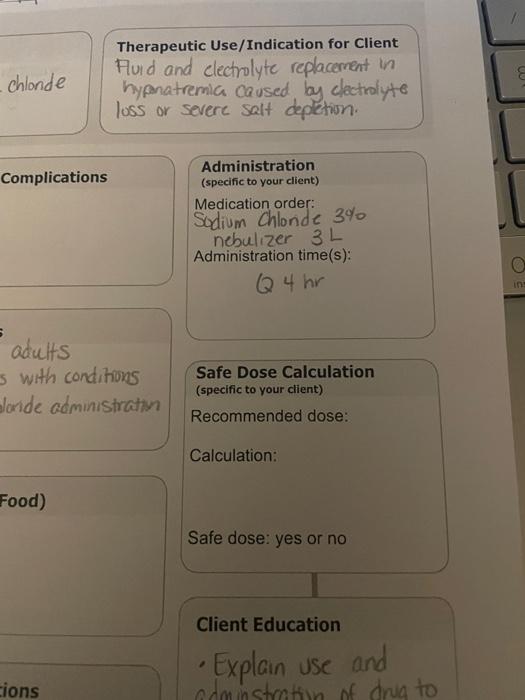 Therapeutic Use/Indication for Client
Fluid and electrolyte replacement in
hyponatremia caused by electrolyte
loss or severe salt depletion.
chloride
Complications
Administration
(specific to your client)
Medication order:
Sodium Chloride 3%
nebulizer 3 L
Administration time(s):
Q 4 hr
s
adults
s with conditions
loride administration
Safe Dose Calculation
(specific to your client)
Recommended dose:
Calculation:
Safe dose: yes or no
Food)
Client Education
• Explain use and
administration of drug to
tions